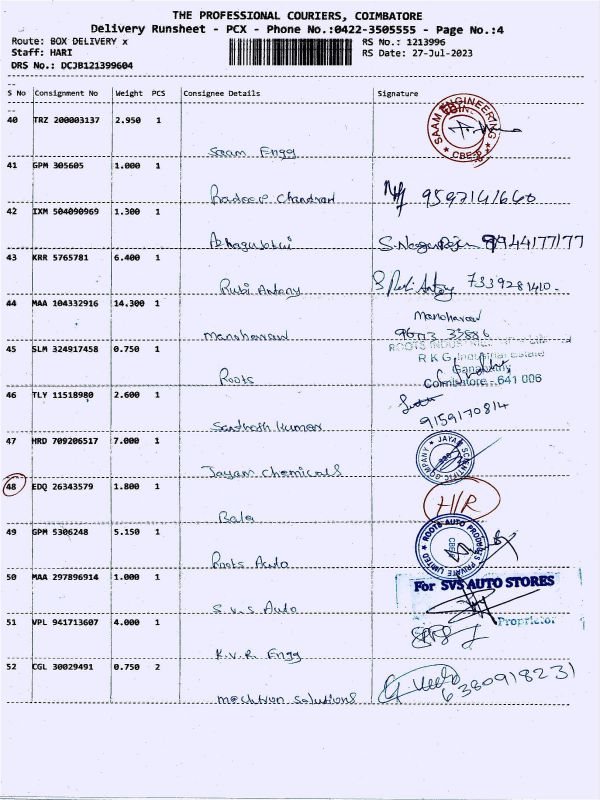 THE PROFESSIONAL COURIERS, COIMBATORE
Delivery Runsheet - PCX - Phone No.:0422-3505555 - Page No.:4
Route: BOX DELIVERY x RS No.: 1213996
Staff: HARI RS Date: 27-Jul-2023
DRS No.: DCJB121399604
S No Consignment No Weight PCS Consignee Details Signature
40 TRZ 200003137 2.950 1
SAAM ENGINEERING CBE-6
Saam Engg
41 GPM 305605 1.000 1
Pradeep Chandran 9597141660
42 IXM 504090969 1.300 1
S. Nagarajan 9944177177
43 KRR 5765781 6.400 1
Rubi Antony S Rubi Antony 7339281410
44 MAA 104332916 14.300 1
Manoharan
manoharan
ROOTS INDUSTRIES
45 SLM 324917458 0.750 1
R K G Industrial Estate
Ganapathy
Roots Coimbatore - 641 006
46 TLY 11518980 2.600 1
9159170814
Santhosh Kumar
47 HRD 709206517 7.000 1
JAYAM SCIENTIFIC COMPANY
Jayam Chemicals
48 EDQ 26343579 1.800 1
H/R
Bala
49 GPM 5306248 5.150 1
ROOTS AUTO PRODUCTS PRIVATE LIMITED
Roots Auto
50 MAA 297896914 1.000 1
For SVS AUTO STORES
S.V.S Auto
51 VPL 941713607 4.000 1
Proprietor
K.V.R. Engg
52 CGL 30029491 0.750 2
6380918231
mechtron solutions